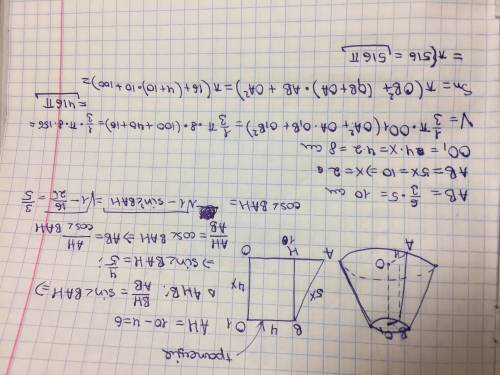 трапеція
B 4 O1
5x 4x
A H O
10
B
O
A
AH = 10-4=6
△AHB: BH/AB = sin∠BAH ⇒
⇒ sin∠BAH = 4/5;
AH/AB = cos∠BAH ⇒ AB = AH/cos∠BAH
cos∠BAH = √1-sin²∠BAH = √1-16/25 = 3/5
AB = 6/3 · 5 = 10 см
AB = 5x = 10 ⇒ x = 2
OO₁ = 4x = 4·2 = 8 см
V = 1/3 π·OO1 (OA²+OA·O₁B+O₁B²) = 1/3 π·8·(100+40+16) = 1/3·π·8·156 =
= 416π
Sп = π(O₁B²+(O₁B+OA)·AB+OA²) = π(16+(4+10)·10+100) =
= π(516 = 516π